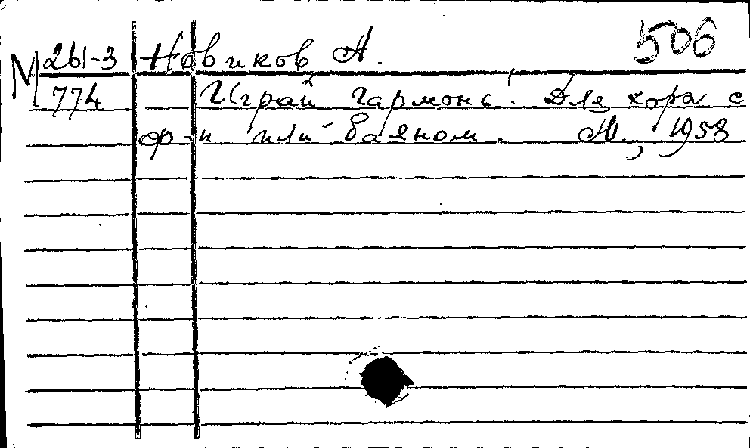 506
М 261-3 Новиков А.
774 Играй гармонь! Для хора с
ф-п или баяном. М., 1958